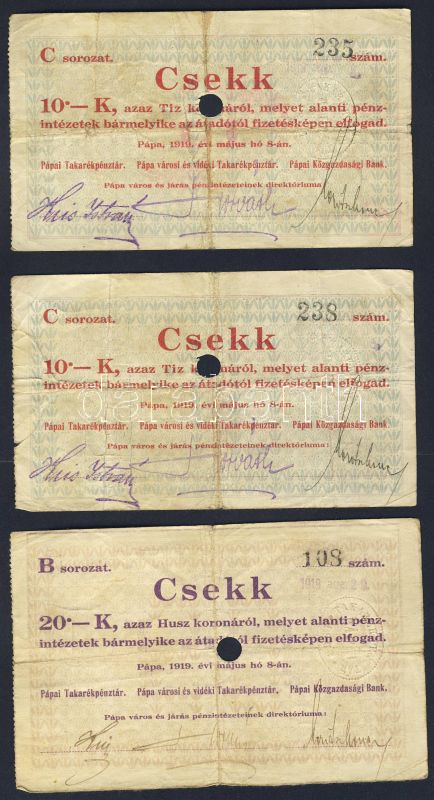 C sorozat. 235 szám.
Csekk
10·— K, azaz Tiz koronáról, melyet alanti pénz-
intézetek bármelyike az átadótól fizetésképen elfogad.
Pápa, 1919. évi május hó 8-án.
Pápai Takarékpénztár. Pápa városi és vidéki Takarékpénztár. Pápai Közgazdasági Bank.
Pápa város és járás pénzintézeteinek direktóriuma:
Kis István Horváth
C sorozat. 238 szám.
Csekk
10·— K, azaz Tiz koronáról, melyet alanti pénz-
intézetek bármelyike az átadótól fizetésképen elfogad.
Pápa, 1919. évi május hó 8-án.
Pápai Takarékpénztár. Pápa városi és vidéki Takarékpénztár. Pápai Közgazdasági Bank.
Pápa város és járás pénzintézeteinek direktóriuma:
Kis István Horváth
B sorozat. 108 szám.
Csekk
20·— K, azaz Husz koronáról, melyet alanti pénz-
intézetek bármelyike az átadótól fizetésképen elfogad.
Pápa, 1919. évi május hó 8-án.
Pápai Takarékpénztár. Pápa városi és vidéki Takarékpénztár. Pápai Közgazdasági Bank.
Pápa város és járás pénzintézeteinek direktóriuma: